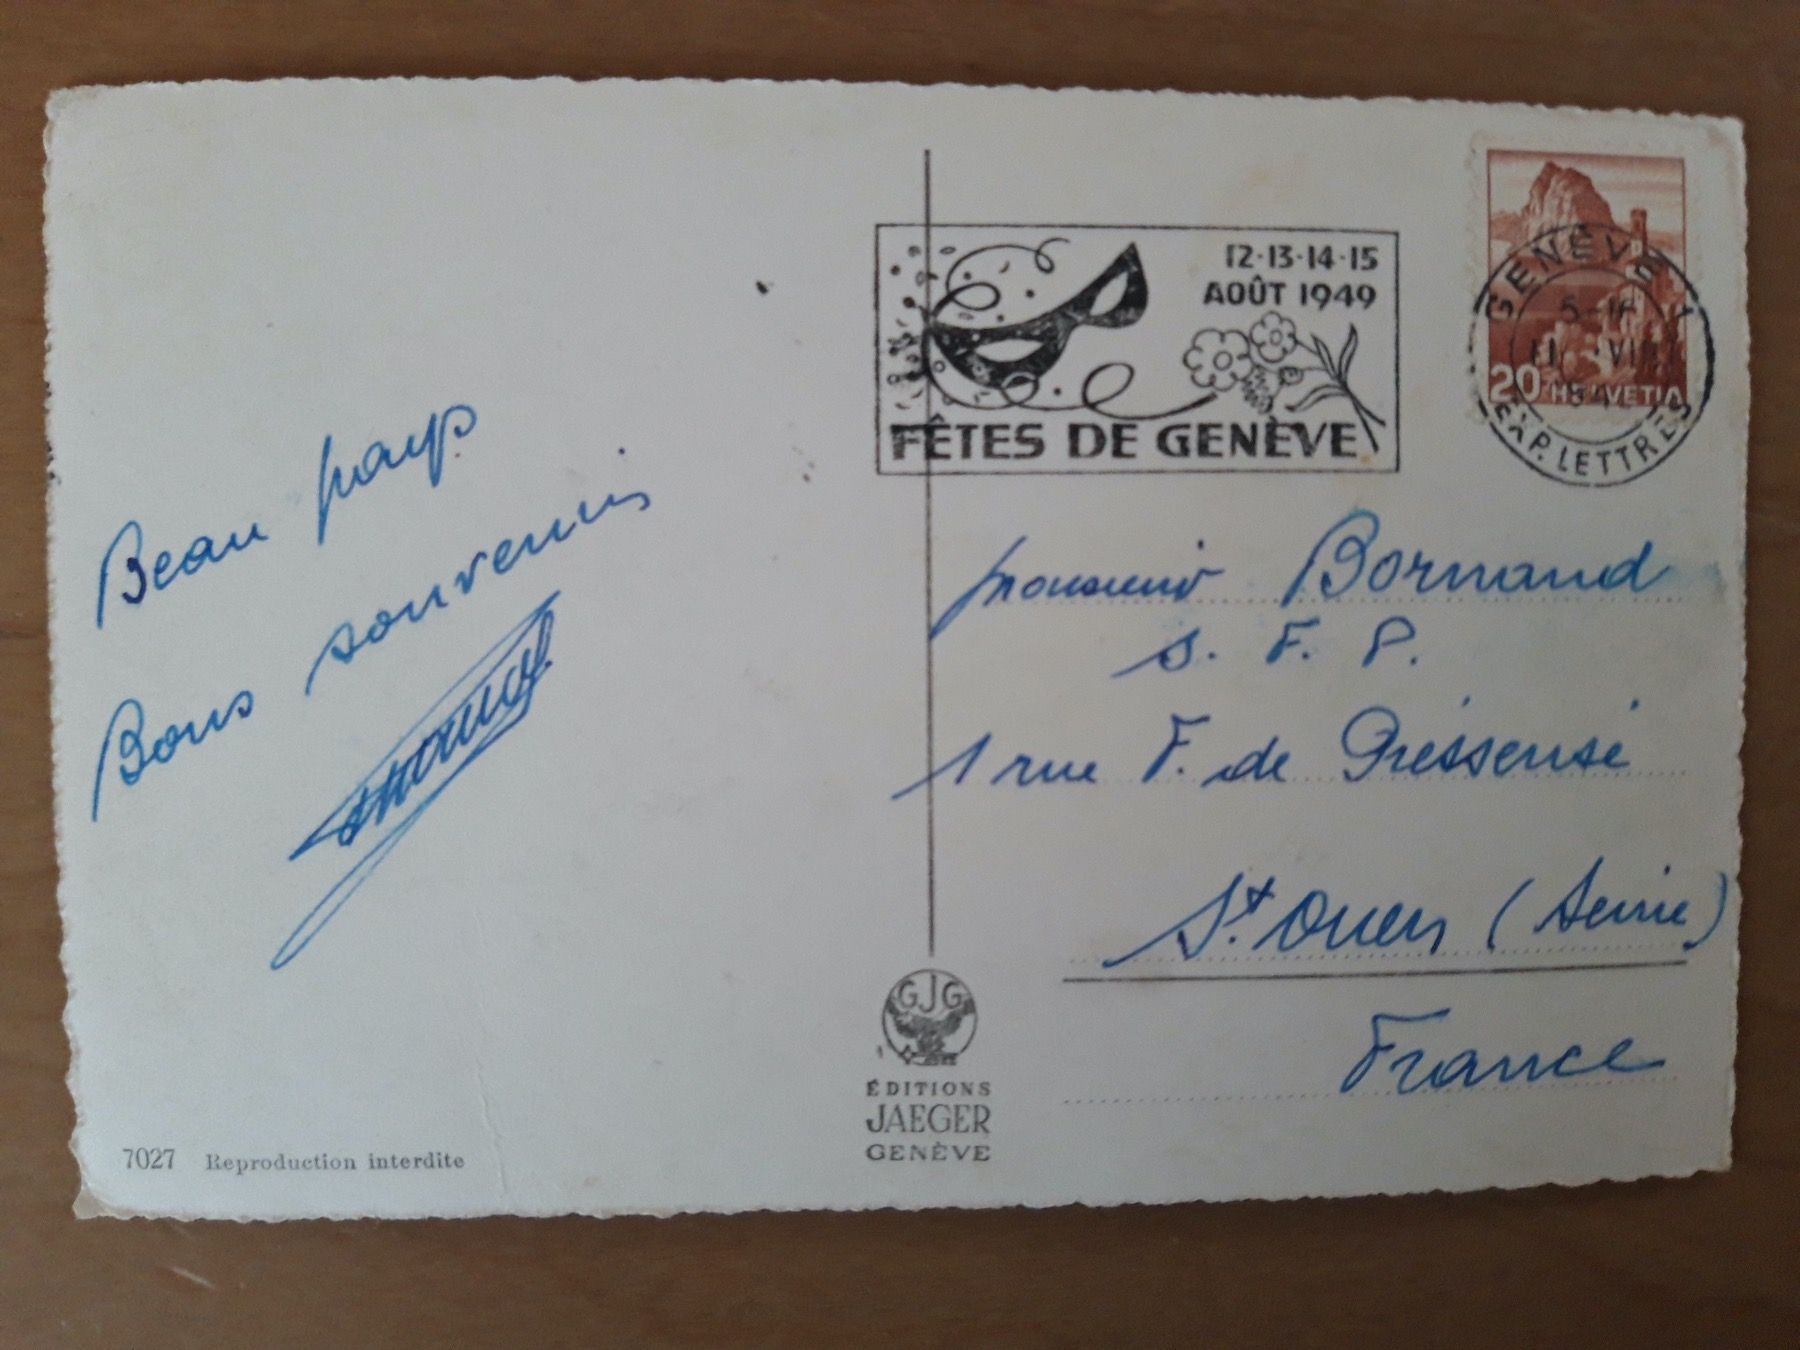 Beau pays
Bons souvenirs
7027 Reproduction interdite
12·13·14·15
AOÛT 1949
FÊTES DE GENÈVE
GENÈVE 1
EXP. LETTRES
20 HELVETIA
monsieur Bornand
S. F. P.
1 rue F. de Préssensé
St. Ouen (Seine)
France
GJG
ÉDITIONS
JAEGER
GENÈVE